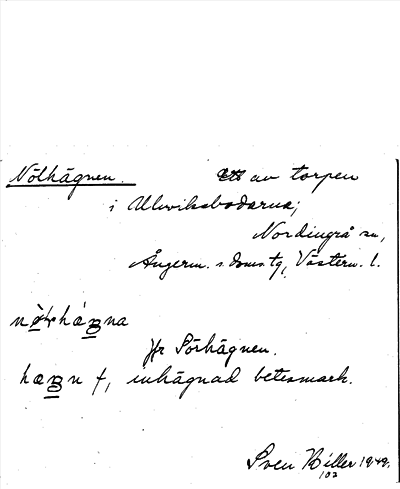 Nölhägnen. Ett av torpen
i Ulwiksbodarna;
Nordingrå sn,
Ångerm. s. doms tg, Västern. l.
hægna
Jfr Sörhägnen.
hægn f, inhägnad betesmark.
Sven Biller 1949.
102